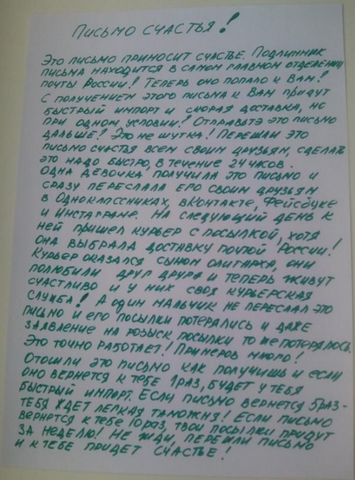 Письмо счастья!
Это письмо приносит счастье. Подлинник
письма находится в самом главном отделении
почты России! Теперь оно попало к Вам!
С получением этого письма к Вам придут
быстрый импорт и скорая доставка, но
при одном условии! Отправьте это письмо
дальше! Это не шутка! Перешли это
письмо счастья всем своим друзьям, сделать
это надо быстро, в течение 24 часов.
Одна девочка получила это письмо и
сразу переслала его своим друзьям
в Одноклассниках, вКонтакте, Фейсбуке
и Инстаграме. На следующий день к
ней пришел курьер с посылкой, хотя
она выбрала доставку почтой России!
Курьер оказался сыном олигарха, они
полюбили друг друга и теперь живут
счастливо и у них своя курьерская
служба! А один мальчик не переслал это
письмо и его посылки потерялись и даже
заявление на розыск посылки то же потерялось.
Это точно работает! Примеров много!
Отошли это письмо как получишь и если
оно вернется к тебе 1 раз, будет у тебя
быстрый импорт. Если письмо вернется 5 раз-
тебя ждет легкая таможня! Если письмо
вернется к тебе 10 раз, твои посылки придут
за неделю! Не жди, перешли письмо
и к тебе придет счастье!